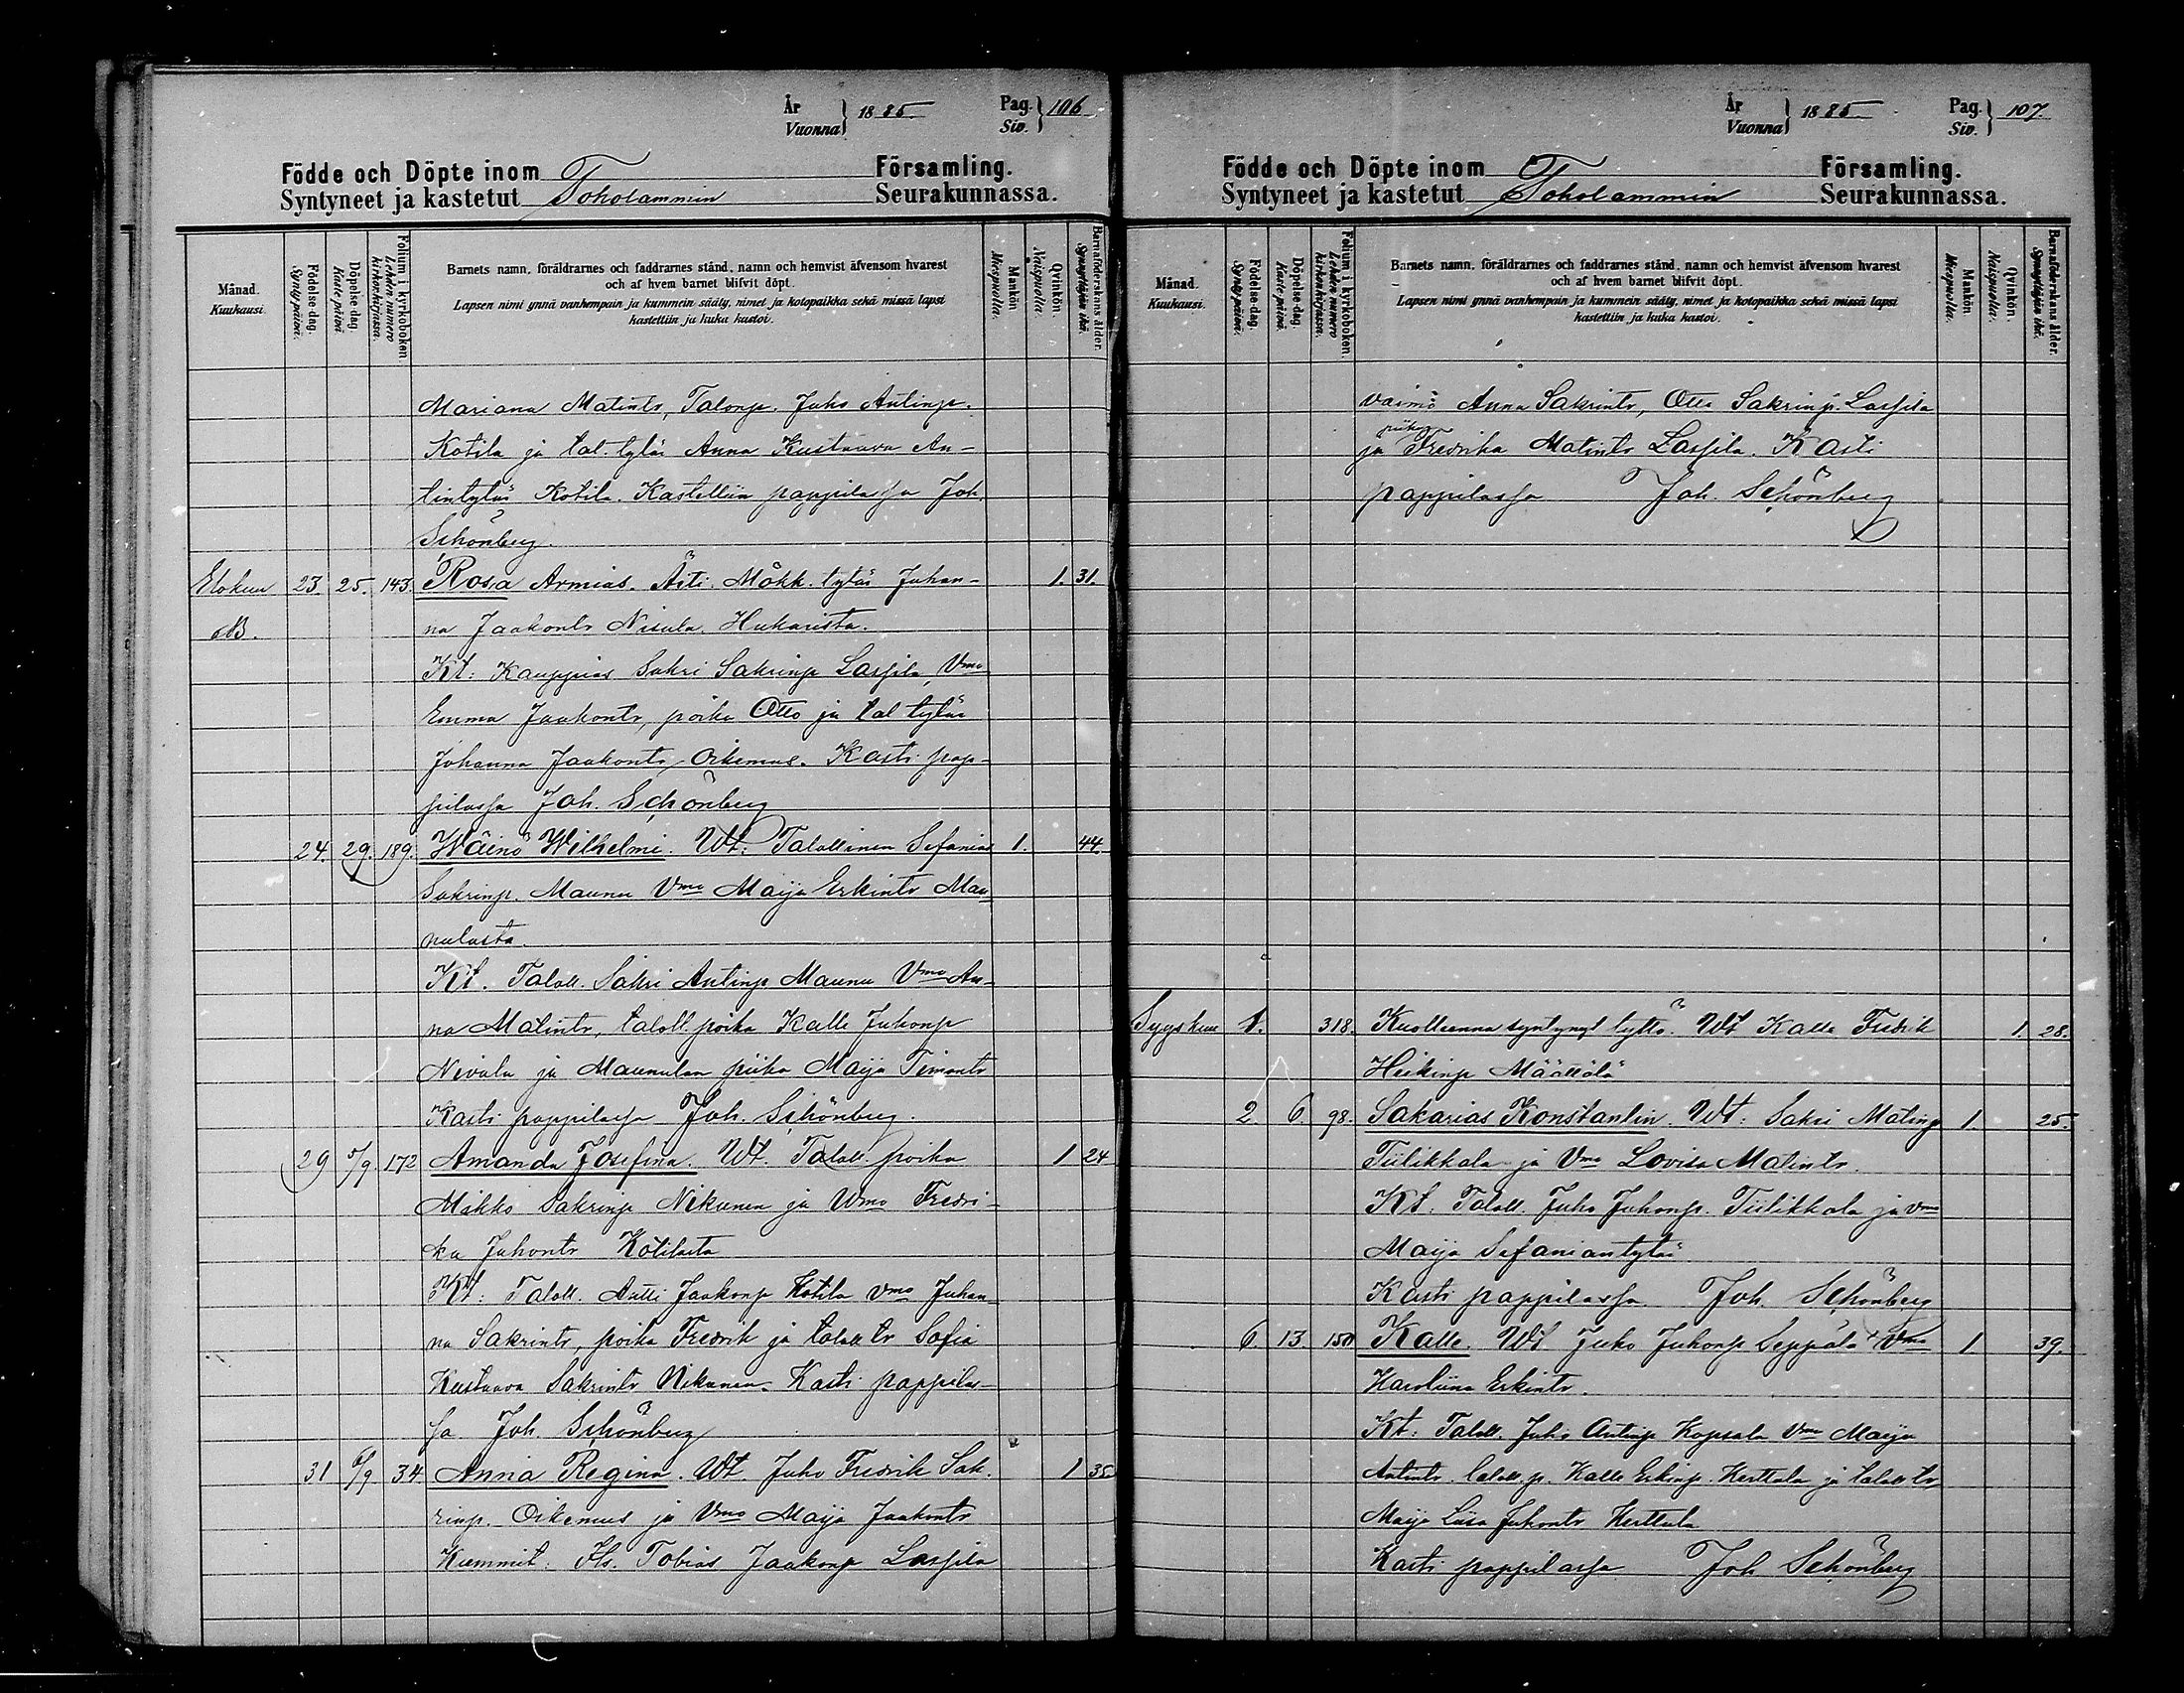 År
Vuonna } 1885
Pag.
Siv. } 106
Födde och Döpte inom Församling.
Syntyneet ja kastetut Toholammin Seurakunnassa.
Månad.
Kuukausi.
Födelse dag.
Synty päivä.
Döpelse dag.
Kaste päivä.
Folium i kyrkoboken.
Lehden numero kirkonkirjassa.
Barnets namn, föräldrarnes och faddrarnes stånd, namn och hemvist äfvensom hvarest
och af hvem barnet blifvit döpt.
Lapsen nimi ynnä vanhempain ja kummein sääty, nimet ja kotopaikka sekä missä lapsi
kastettiin ja kuka kastoi.
Mankön.
Miespuolia.
Qvinkön.
Naispuolia.
Barnaföderskans ålder.
Synnyttäjän ikä.
Mariana Matintr, Talonp. Juho Antinp.
Kotila ja tal. tytär Anna Kustaava An-
tintytär Kotila. Kastettiin pappilassa Joh.
Schönberg.
Elokuu 23. 25. 143. Rosa Armias. Äiti: Mökk. tytär Juhan- 1. 31.
oÄ. na Jaakontr Nisula. Hukarista.
Kt: Kauppias Sakri Sakrinp Lassila, Vmo
Emma Jaakontr, poika Otto ja tal tytär
Johanna Jaakontr Oikemus. Kasti pap-
pilassa Joh. Schönberg
24. 29. 189. Wäinö Wilhelmi. Wt: Talollinen Sefanias 1. 44.
Sakrinp. Maunu Vmo Maija Erkintr Mau-
nulasta.
Kt. Taloll. Sakri Antinp Maunu Vmo An-
na Matintr, taloll. poika Kalle Juhonp
Nivala ja Maunulan piika Maija Timontr
Kasti pappilassa Joh. Schönberg.
29 5/9. 172 Amanda Josefina. Wt. Taloll. poika 1 24
Mikko Sakrinp Nikunen ja Vmo Fredri-
ka Juhontr Kotilasta
Kt: Taloll. Antti Jaakonp Kotila Vmo Juhan-
na Sakrintr, poika Fredrik ja taloll tr Sofia
Kustaava Sakrintr Nikunen. Kasti pappilas-
sa Joh. Schönberg
31 6/9 34 Anna Regina. Wt. Juho Fredrik Sak- 1 35
rinp. Oikemus ja Vmo Maija Jaakontr
Kummit: Tobias Jaakonp Lassila
År
Vuonna } 1885
Pag.
Siv. } 107.
Födde och Döpte inom Församling.
Syntyneet ja kastetut Toholammin Seurakunnassa.
Månad.
Kuukausi.
Födelse dag.
Synty päivä.
Döpelse dag.
Kaste päivä.
Folium i kyrkoboken.
Lehden numero kirkonkirjassa.
Barnets namn, föräldrarnes och faddrarnes stånd, namn och hemvist äfvensom hvarest
och af hvem barnet blifvit döpt.
Lapsen nimi ynnä vanhempain ja kummein sääty, nimet ja kotopaikka sekä missä lapsi
kastettiin ja kuka kastoi.
Mankön.
Miespuolia.
Qvinkön.
Naispuolia.
Barnaföderskans ålder.
Synnyttäjän ikä.
vaimo Anna Sakrintr, Otto Sakrinp. Lassila
piika
ja Fredrika Matintr Lassila. Kasti
pappilassa Joh. Schönberg
Syyskuu 1. 318. Kuolleenna syntynyt tyttö. Wt Kalle Fredrik 1. 28.
Heikinp Määttälä
2 6. 98. Sakarias Konstantin. Wt: Sakri Matinp 1. 25.
Tiilikkala ja Vmo Lovisa Matintr.
Kt: Taloll. Juho Juhonp. Tiilikkala ja vmo
Maija Sefaniantytär
Kasti pappilassa Joh. Schönberg
6. 13. 150 Kalle. Wt. Juho Juhonp Seppälä + Vmo 1 39.
Karoliina Erkintr.
Kt: Taloll. Juho Antinp Kopsala Vmo Maija
Antintr. taloll. p. Kalle Erkinp. Herttula ja taloll tr,
Maija Liisa Juhontr Herttula
Kasti pappilassa Joh Schönberg